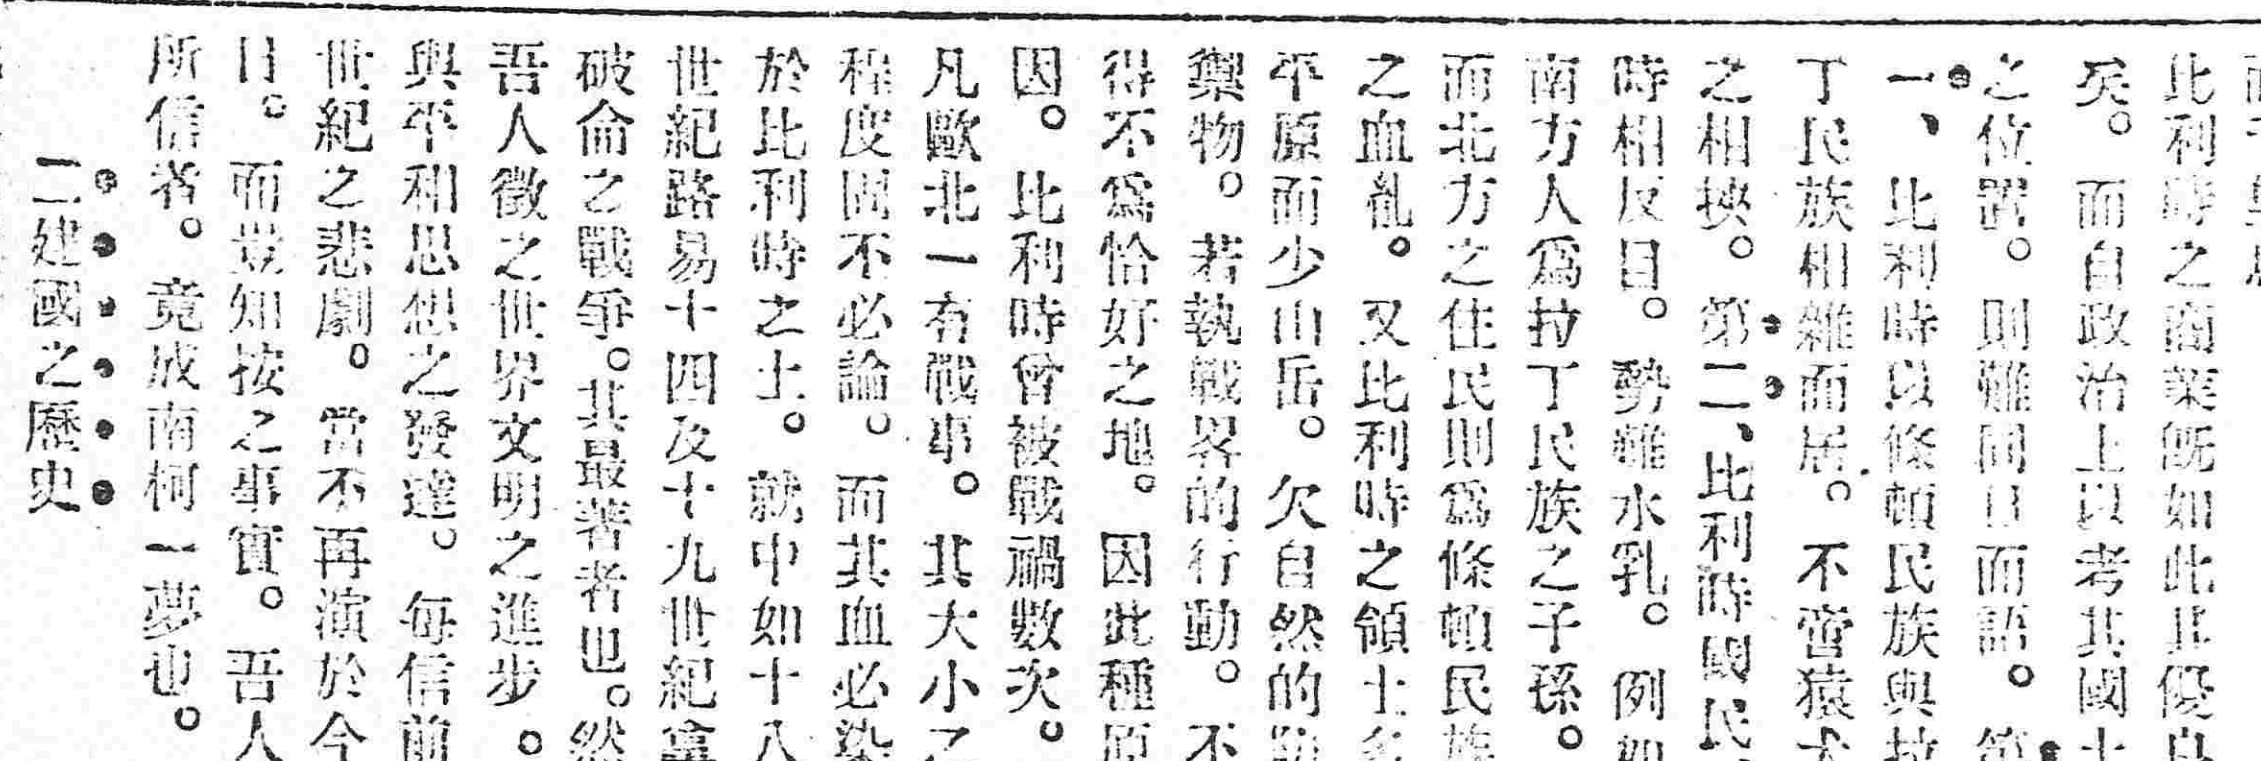 此利時之商業既如此其優良
矣。而自政治上以考其國土
之位置。則難同日而語。第
一、比利時以條頓民族與拉
丁民族相雜而居。不啻猿犬
之相挾。第二、比利時國民
時相反目。勢難水乳。例如
南方人爲拉丁民族之子孫。
而北方之住民則爲條頓民族
之血亂。又比利時之領土多
平原而少山岳。欠自然的防
禦物。若執戰畧的行動。不
得不爲恰好之地。因此種原
因。比利時曾被戰禍數次。
凡歐北一有戰事。其大小之
程度固不必論。而其血必染
於比利時之土。就中如十八
世紀路易十四及十九世紀拿
破侖之戰爭。其最著者也。然
吾人徵之世界文明之進步。
與平和思想之發達。每信前
世紀之悲劇。當不再演於今
日。而豈知按之事實。吾人
所信者。竟成南柯一夢也。
二建國之歷史